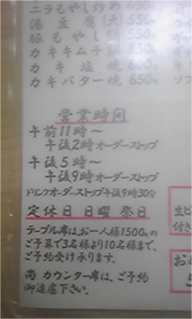 ニラもやし炒め 600
湯豆腐(大) 550
豚もやし
カキキムチ鍋
カキ塩焼 600
カキバター焼 650
営業時間
午前11時～
午後2時オーダーストップ
午後5時～
午後9時オーダーストップ
ドリンクオーダーストップ午後9時30分
定休日 日曜 祭日
テーブル席は、お一人様1500円の
ご予算で3名様より10名様まで、
ご予約受け承ります。
尚 カウンター席は、ご予約
御遠慮下さい。
生ビ
付き